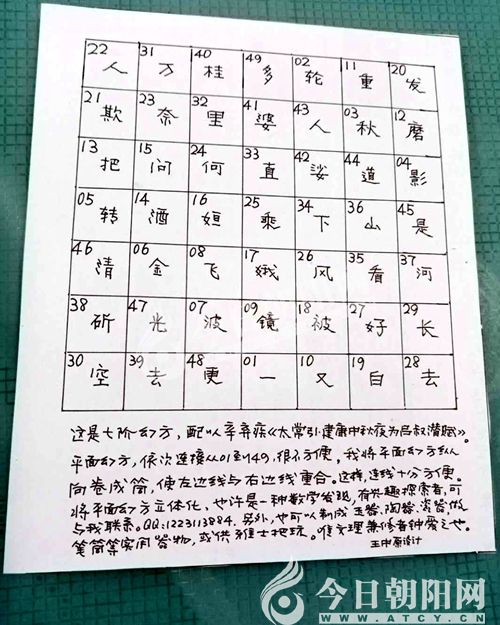 22 31 40 49 02 11 20
人 万 桂 多 轮 重 发
21 23 32 41 43 03 12
欺 奈 里 婆 人 秋 磨
13 15 24 33 42 44 04
把 问 何 直 娑 道 影
05 14 16 25 34 36 45
转 酒 姮 乘 下 山 是
46 06 08 17 26 35 37
清 金 飞 娥 风 看 河
38 47 07 09 18 27 29
斫 光 波 镜 被 好 长
30 39 48 01 10 19 28
空 去 更 一 又 白 去
这是七阶幻方，配以辛弃疾《太常引·建康中秋夜为吕叔潜赋》。
平面幻方，依次连接从01到49，很不方便，我将平面幻方纵
向卷成筒，使左边线与右边线重合。这样，连线十分方便。
将平面幻方立体化，也许是一种数学发现，有兴趣探索者，可
与我联系。QQ：1223113884，另外，也可以制成玉器、陶器、瓷器做
笔筒等实用器物，或供雅士把玩。惟文理兼修者钟爱之也。
王中原设计
今日朝阳网
WWW.ATCY.CN